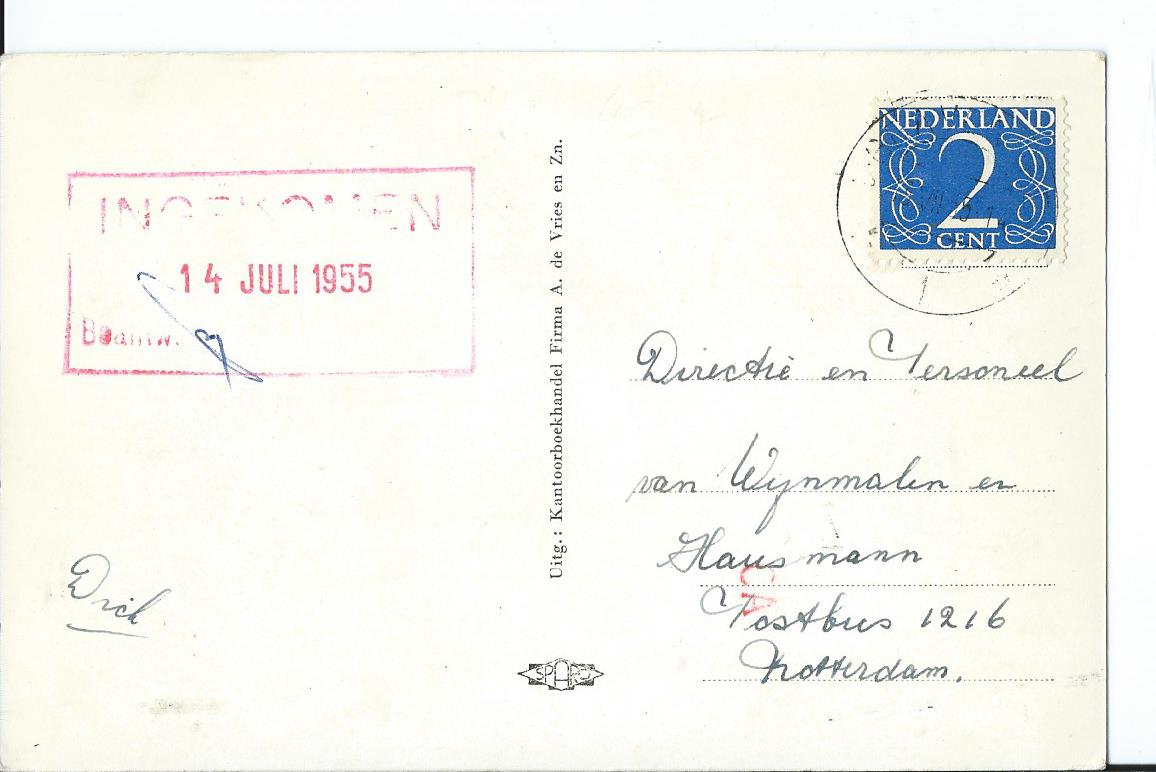 INGEKOMEN
14 JULI 1955
Beantw.
Dick
Uitg.: Kantoorboekhandel Firma A. de Vries en Zn.
SPARO
NEDERLAND
2
CENT
1
Directie en Personeel
van Wijnmalen en
Hausmann
CA
Postbus 1216
Rotterdam.